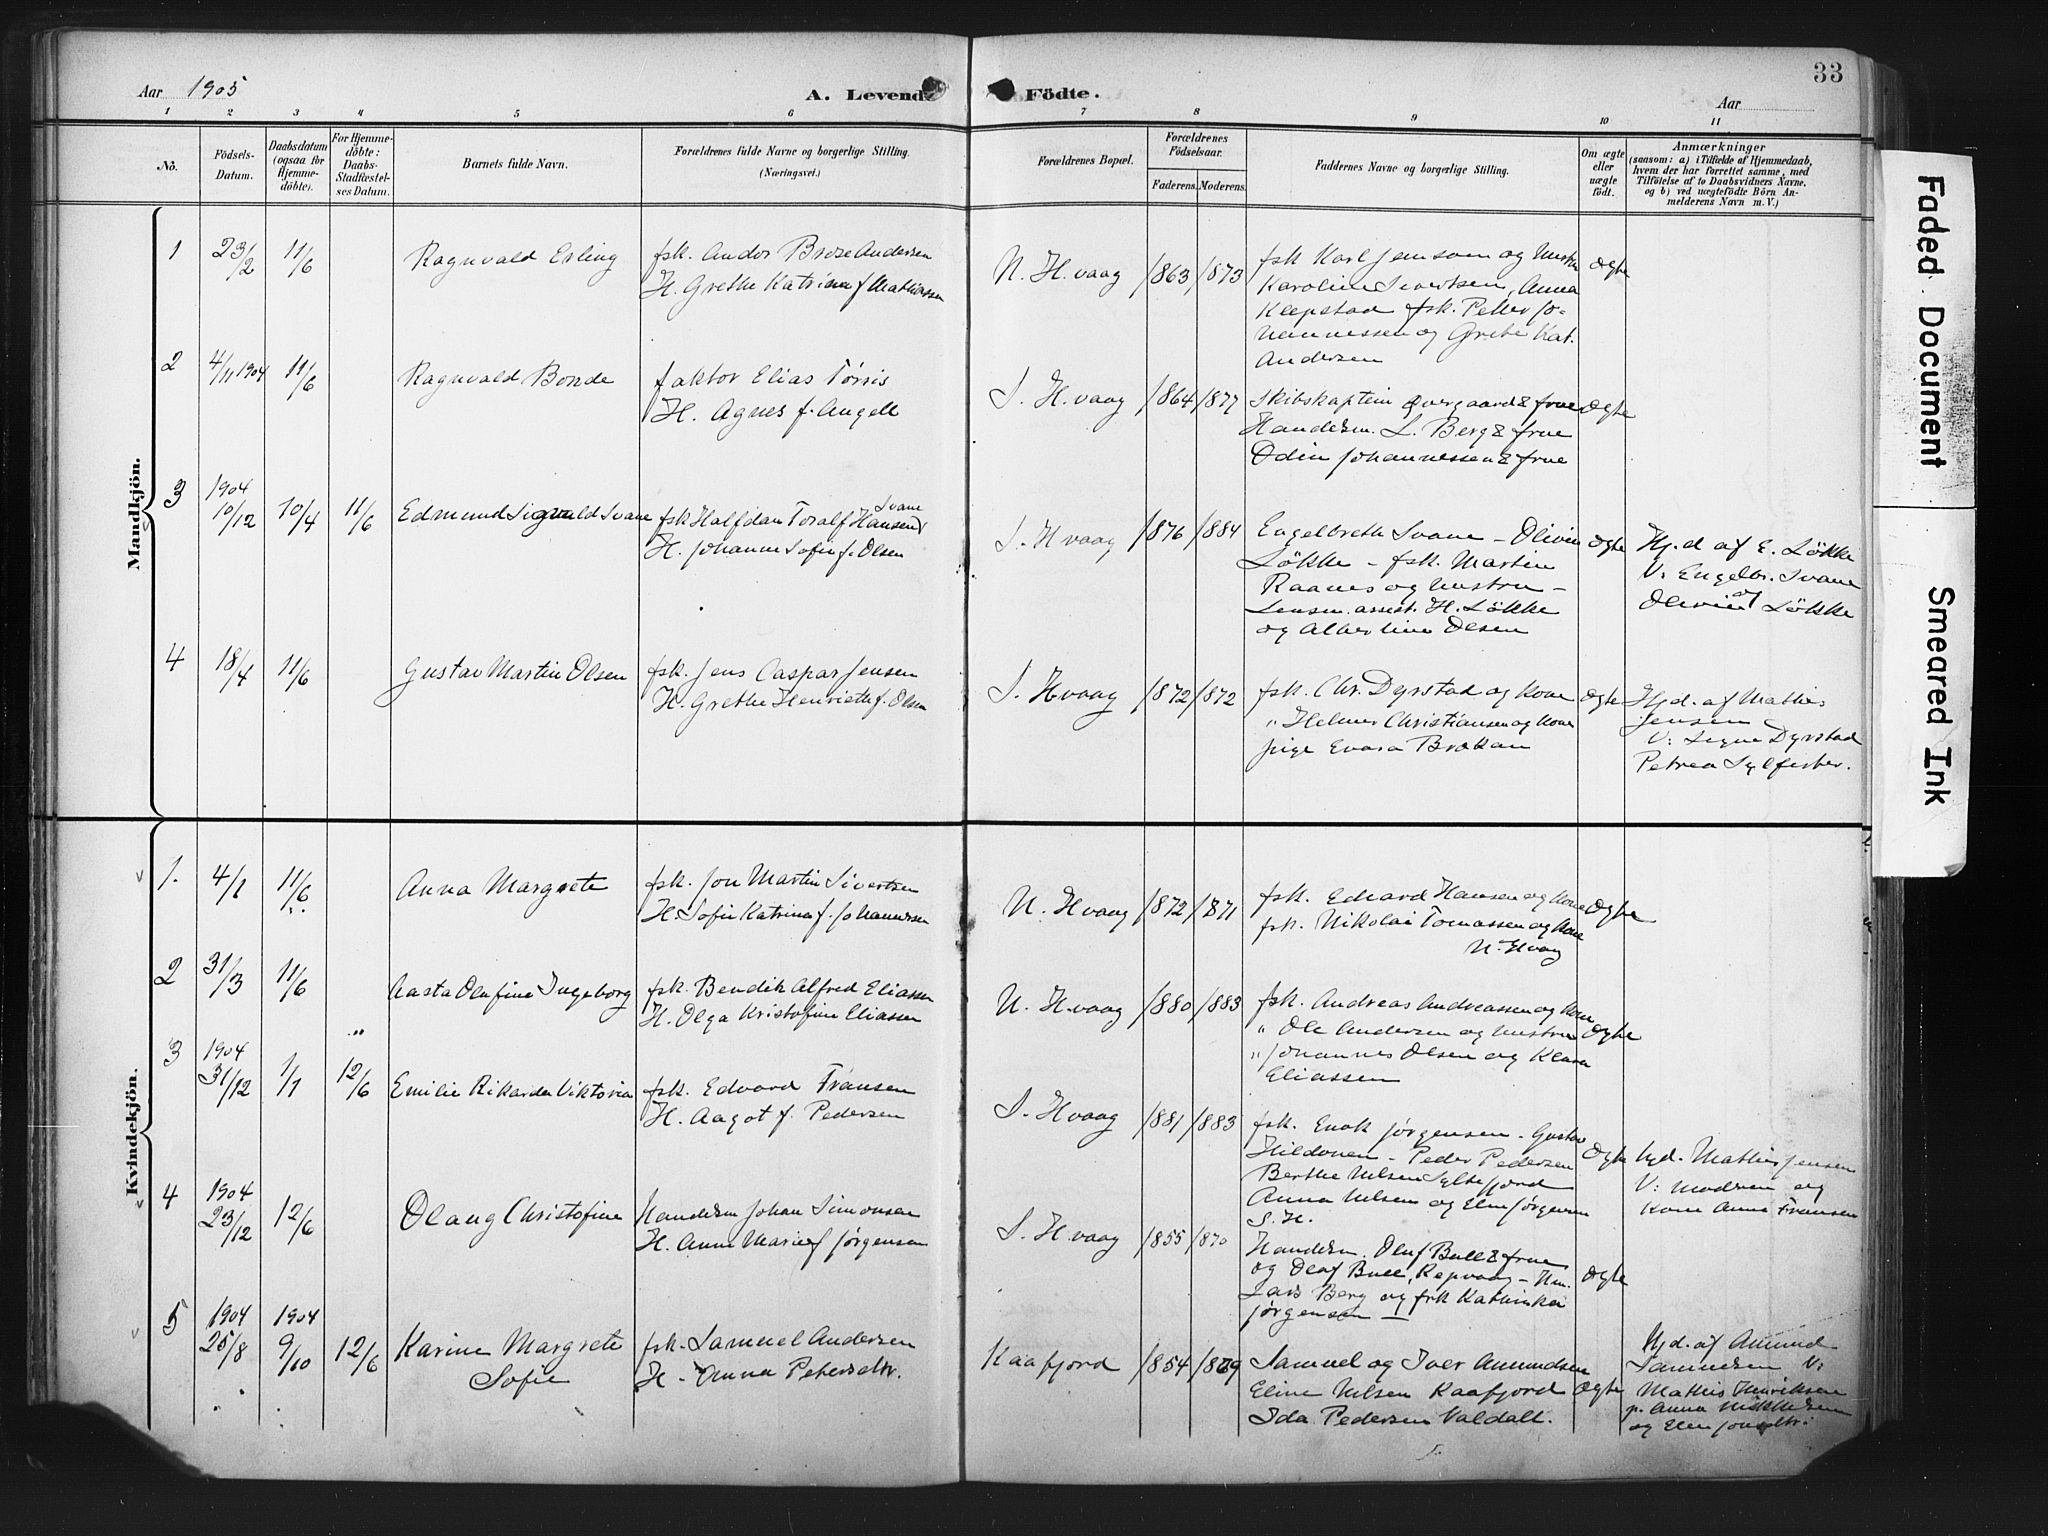 33
Aar 1905
A. Levende
Födte.
Aar
1 2 3 4 5 6 7 8 9 10 11
No.
Födsels-Datum.
Daabsdatum (ogsaa for Hjemme-döbte).
For Hjemme-döbte: Daabs-Stadfæstel-ses Datum.
Barnets fulde Navn.
Forældrenes fulde Navne og borgerlige Stilling.
(Næringsvei.)
Forældrenes Bopæl.
Forældrenes Födselsaar.
Faderens. Moderens.
Faddernes Navne og borgerlige Stilling.
Om ægte eller uægte födt.
Anmærkninger
(saasom: a) i Tilfælde af Hjemmedaab,
hvem der har forrettet samme, med
Tilföielse af to Daabsvidners Navne,
og b) ved uægtefödte Börn An-
melderens Navn m. V.)
Mandkjön.
1 23/2 11/6 Ragnvald Erling
fsk. Andor Broze Andersen
H. Grethe Katrine f Mathiassen
N. H.vaag 1863 1873
fsk Karl Jenssen og Hustru
Karoline Sivertsen, Anna
Keepstad fsk. Peder Jo-
hannessen og Grete Kat.
Andersen
Ægte
2 4/11 1904 11/6 Ragnvald Bonde
faktor Elias Törris
H. Agnes f. Angell
S. H.vaag 1864 1877
Skibskaptein Overgaard & frue
Handelsm. L. Berg & frue
Odin Johannessen & frue
Ægte
3 1904 10/12 10/4 11/6 Edmund Sigvald Svane
fsk Halfdan Toralf Hansen Svane
H. Johanne Sofie f. Olsen
S. Hvaag 1876 1884
Engelbreth Svane - Olivie
Løkke - fsk. Martin
Raanes og Hustru -
Lensm. assist. H. Løkke
og Albertine Olsen
Ægte
Hj.d af E. Løkke
V: Engelbr. Svane
og
Olivie Løkke
4 18/4 11/6 Gustav Martin Olsen
fsk. Jens Caspar Jensen
H. Grethe Henriette f. Olsen
S. Hvaag 1872 1872
fsk. Chr. Dyrstad og Kone
" Helmer Christiansen og Kone
pige Evara Brækan
Ægte
Hjd. af Mathis
Jensen
V: Signe Dyrstad
Petrea Sylfester.
Kvindekjön.
1. 4/1 11/6 Anna Margrete
fsk. Jon Martin Sivertsen
H Sofie Katrine f. Johannesen
N. Hvaag 1872 1871
fsk. Edvard Hansen og Kone
fsk. Nikolai Tomassen og Kone
N. Hvaag
Ægte
2 31/3 11/6 Aasta Olufine Ingeborg
fsk. Bendik Alfred Eliassen
H. Olga Kristofine Eliassen
N. H.vaag 1880 1883
fsk. Andreas Andreassen og Kone
" Ole Andersen og Hustru
" Johannes Olsen og Klara
Eliassen
Ægte
3 1904 31/12 1/1 12/6 Emilie Rikarda Viktoria
fsk. Edvard Fransen
H. Aagot f. Pedersen
S. Hvaag 1881 1883
fsk. Enok Jørgensen - Gustav
Hildonen - Peder Pedersen
Berthe Nilsen Syltefjord
Anna Nilsen og Elen Jørgensen
S. H.
Ægte
Hjd. Mathis Jensen
V: Modren og
Kone Anna Fransen
4 1904 23/12 12/6 Olaug Christofine
Handelsm Johan Simonsen
H. Anne Marie f Jørgensen
S. H.vaag 1855 1870
Handelsm. Oluf Bull & frue
og Olaf Bull, Repvaag - Hm.
Lars Berg og frk Kathinka
Jørgensen
Ægte
5 1904 25/8 1904 9/10 12/6 Karine Margrete
Sofie
fsk. Samuel Andersen
H - Anna Petersdtr.
Kaafjord 1854 1869
Samuel og Iver Amundsen
Eline Nilsen Kaafjord
Ida Pedersen Valdalt.
Ægte
Hjd. af Amund
Samuelsen V:
Mathis Henriksen
p. Anna Mikkelsen
og Elen Jonsdtr.
Faded Document
Smeared Ink